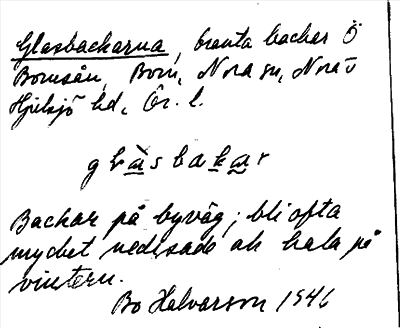 Glasbackarna, branta backar Ö
Bornsån, Born, Nora sn, Nora o
Hjulsjö hd, Ör. l.
glàsbakar
Backar på byväg; bli ofta
mycket nedisade och hala på
vintern.
Bo Halvarson 1946